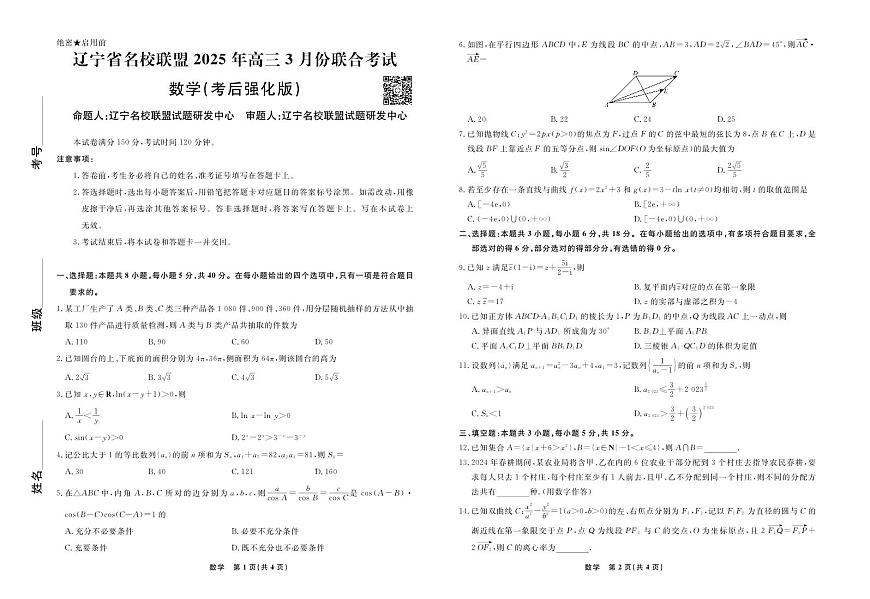 绝密★启用前
辽宁省名校联盟 2025 年高三 3 月份联合考试
数学(考后强化版)
命题人:辽宁名校联盟试题研发中心 审题人:辽宁名校联盟试题研发中心
本试卷满分 150 分,考试时间 120 分钟。
注意事项:
1. 答卷前,考生务必将自己的姓名、准考证号填写在答题卡上。
2. 答选择题时,选出每小题答案后,用铅笔把答题卡对应题目的答案标号涂黑。如需改动,用橡
皮擦干净后,再选涂其他答案标号。答非选择题时,将答案写在答题卡上。写在本试卷上
无效。
3. 考试结束后,将本试卷和答题卡一并交回。
考号
班级
姓名
一、选择题:本题共 8 小题,每小题 5 分,共 40 分。在每小题给出的四个选项中,只有一项是符合题目
要求的。
1. 某工厂生产了 A 类、B 类、C 类三种产品各 1 080 件、900 件、360 件,用分层随机抽样的方法从中抽
取 130 件产品进行质量检测,则 A 类与 B 类产品共抽取的件数为
A. 110 B. 90 C. 60 D. 50
2. 已知圆台的上、下底面的面积分别为 4π,36π,侧面积为 64π,则该圆台的高为
A. 2√3 B. 3√3 C. 4√3 D. 5√3
3. 已知 x,y∈R,ln(x−y+1)>0,则
A. 1/x<1/y B. ln x−ln y>0
C. sin(x−y)>0 D. 2ˣ−2ʸ>3⁻ˣ−3⁻ʸ
4. 记公比大于 1 的等比数列{aₙ}的前 n 项和为 Sₙ,a₁+a₅=82,a₂a₄=81,则 S₅=
A. 30 B. 40 C. 121 D. 160
5. 在△ABC 中,内角 A,B,C 所对的边分别为 a,b,c,则 a/cos A=b/cos B=c/cos C 是 cos(A−B)·
cos(B−C)cos(C−A)=1 的
A. 充分不必要条件 B. 必要不充分条件
C. 充要条件 D. 既不充分也不必要条件
数学 第 1 页(共 4 页)
6. 如图,在平行四边形 ABCD 中,E 为线段 BC 的中点,AB=3,AD=2√2,∠BAD=45°,则AC·
AE=
D C
E
A B
A. 20 B. 22 C. 24 D. 25
7. 已知抛物线 C:y²=2px(p>0)的焦点为 F,过点 F 的 C 的弦中最短的弦长为 8,点 B 在 C 上,D 是
线段 BF 上靠近点 F 的五等分点,则 sin∠DOF(O 为坐标原点)的最大值为
A. √5/5 B. √3/2 C. 2/5 D. 2√5/5
8. 若至少存在一条直线与曲线 f(x)=2x²+3 和 g(x)=3−tln x(t≠0)均相切,则 t 的取值范围是
A. [−4e,0) B. [2e,+∞)
C. (−4e,0)∪(0,+∞) D. [−4e,0)∪(0,+∞)
二、选择题:本题共 3 小题,每小题 6 分,共 18 分。在每小题给出的选项中,有多项符合题目要求,全
部选对的得 6 分,部分选对的得部分分,有选错的得 0 分。
9. 已知 z 满足z̄(1−i)=z+5i/(2−i),则
A. z=−4+i B. 复平面内z̄对应的点在第一象限
C. zz̄=17 D. z 的实部与虚部之积为−4
10. 已知正方体 ABCD-A₁B₁C₁D₁ 的棱长为 1,P 为 B₁D₁ 的中点,Q 为线段 AC 上一动点,则
A. 异面直线 A₁P 与 AD₁ 所成角为 30° B. B₁D⊥平面 A₁PB
C. 平面 A₁C₁D⊥平面 BB₁D₁D D. 三棱锥 A₁-QC₁D 的体积为定值
11. 设数列{aₙ}满足 aₙ₊₁=aₙ²−3aₙ+4,a₁=3,记数列{1/(aₙ−1)}的前 n 项和为 Sₙ,则
A. aₙ₊₁>aₙ
C. Sₙ<1
三、填空题:本题共 3 小题,每小题 5 分,共 15 分。
12. 已知集合 A={x|x+6>x²},B={x∈N|−1<x≤4},则 A∩B=________.
13. 2024 年春耕期间,某农业局将含甲、乙在内的 6 位农业干部分配到 3 个村庄去指导农民春耕,要
求每人只去 1 个村庄,每个村庄至少有 1 人前去,且甲、乙不分配到同一个村庄,则不同的分配方
法共有________种.(用数字作答)
14. 已知双曲线 C:x²/a²−y²/b²=1(a>0,b>0)的左、右焦点分别为 F₁,F₂,记以 F₁F₂ 为直径的圆与 C 的
渐近线在第一象限交于点 P,点 Q 为线段 PF₂ 与 C 的交点,O 为坐标原点,且 2F₁Q=F₁P+
2OF₂,则 C 的离心率为________.
数学 第 2 页(共 4 页)